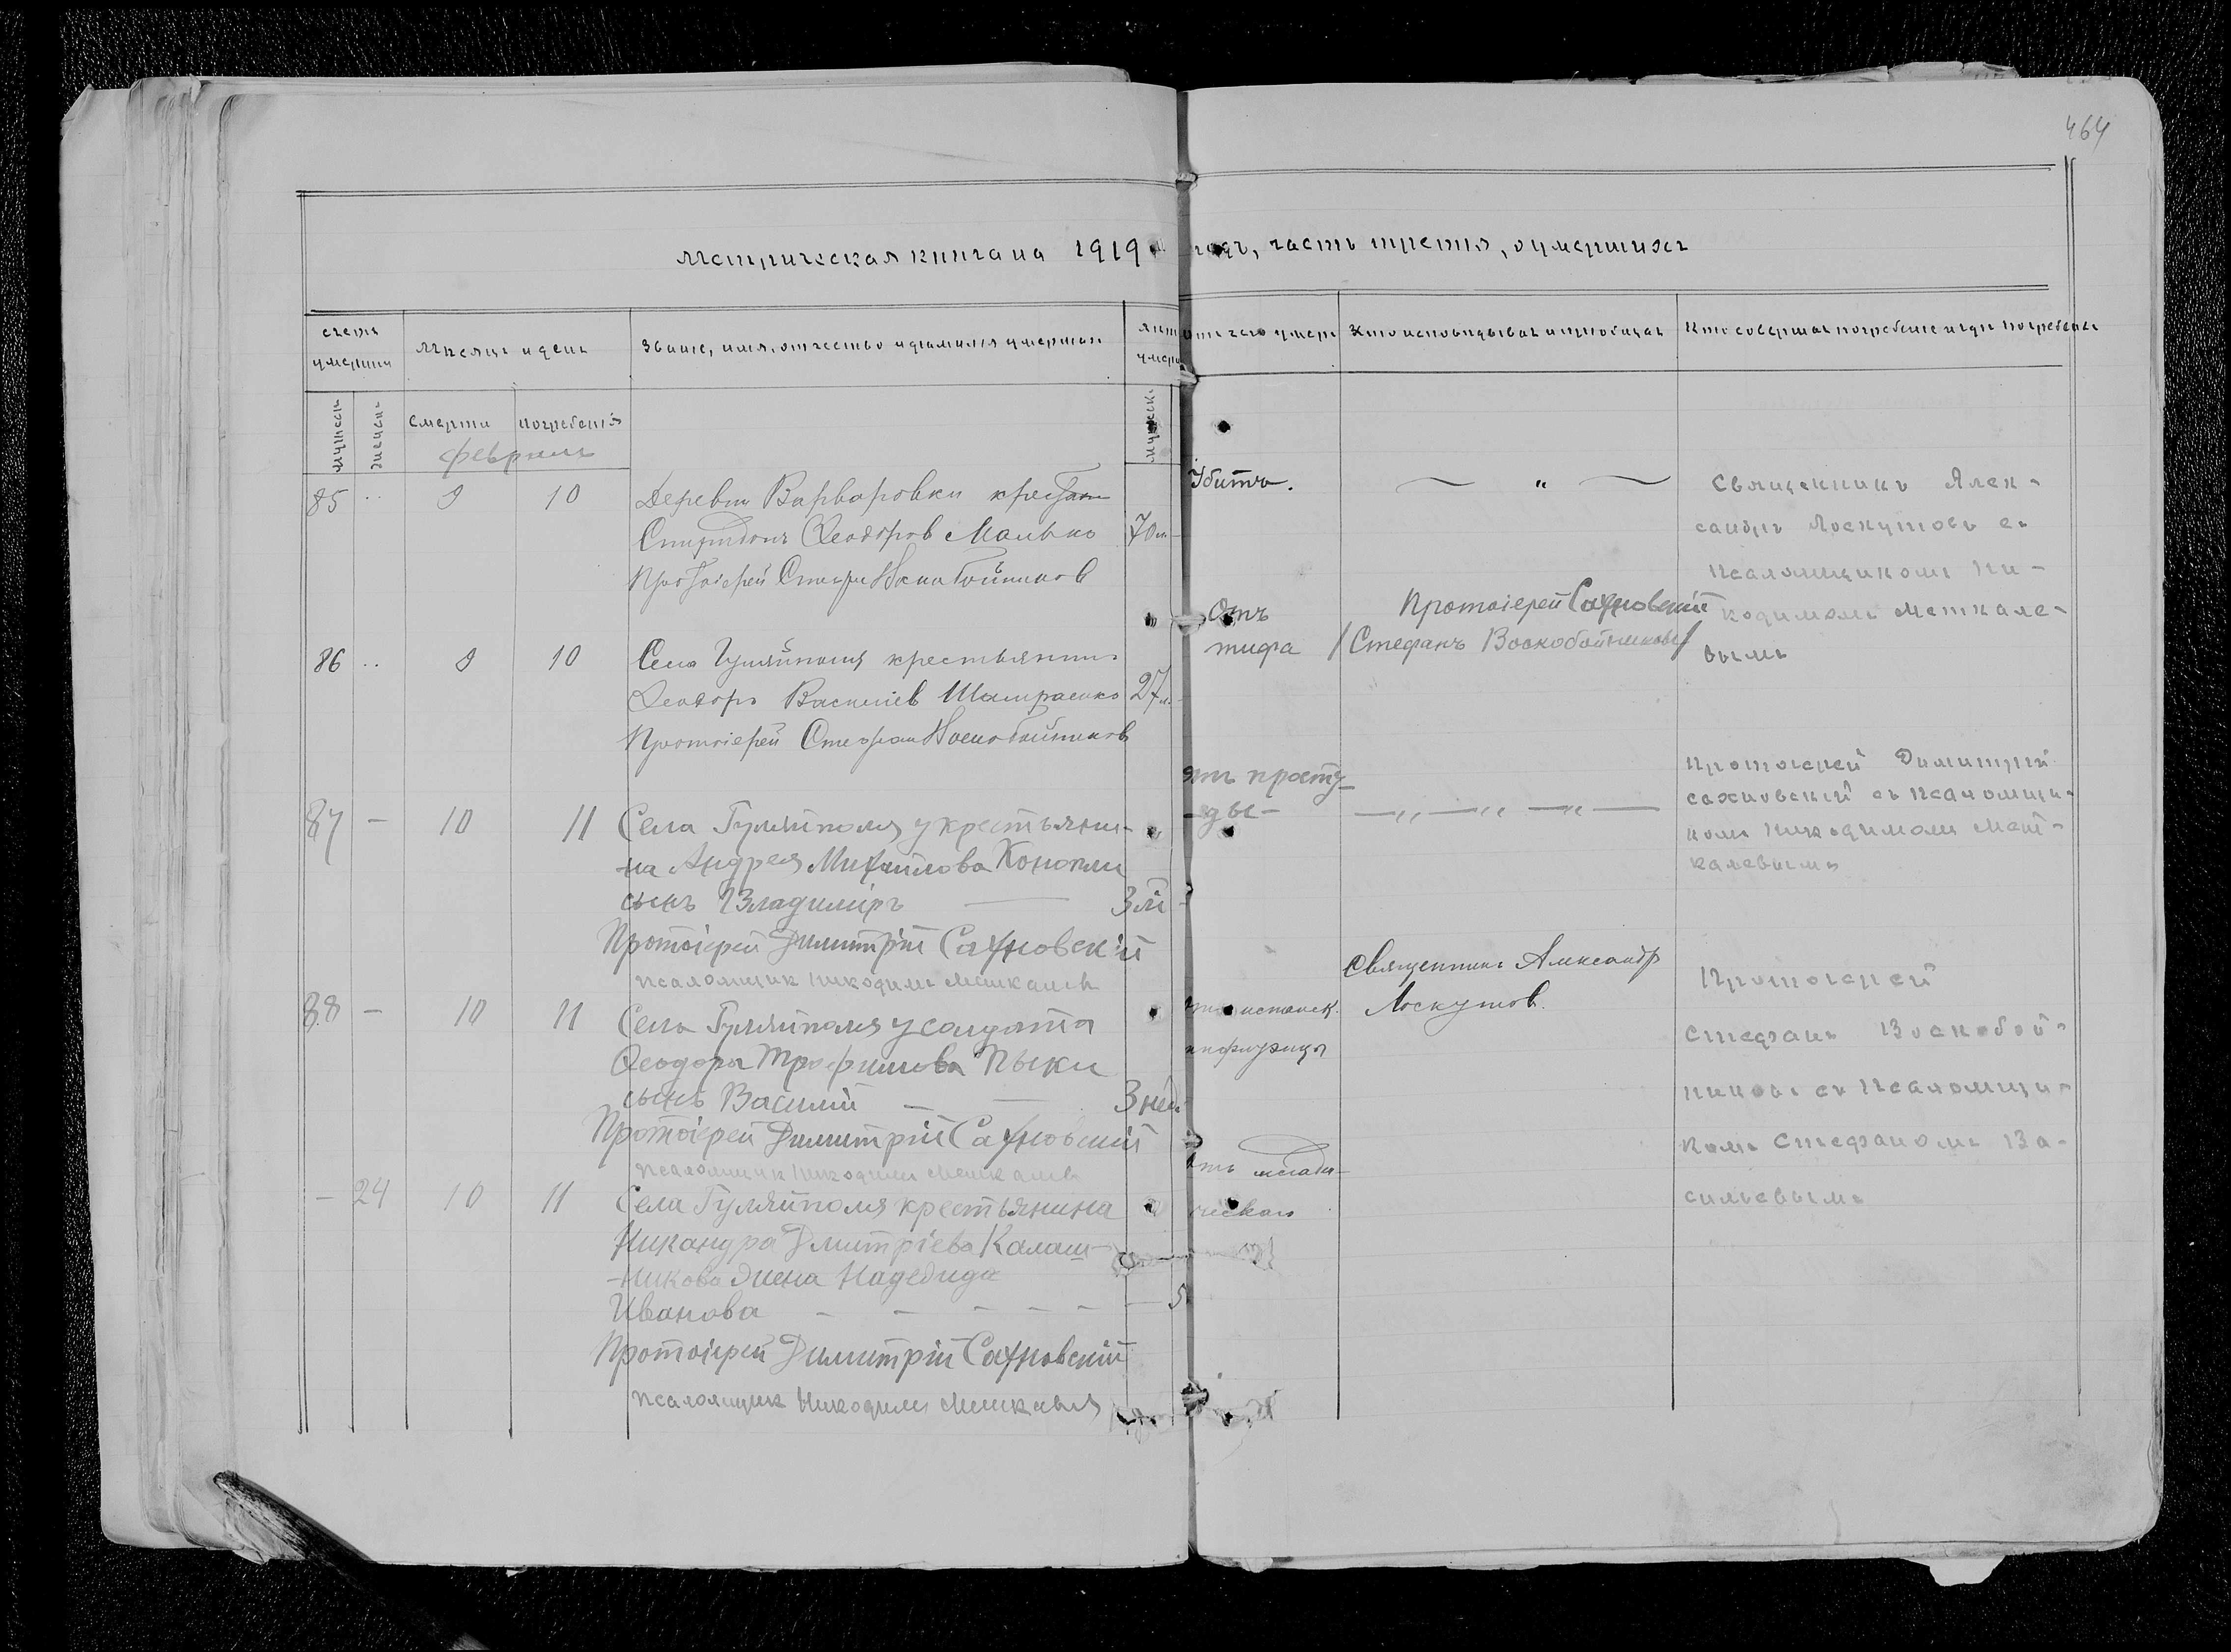 464
Метрическая книга на 1919 годъ, часть третья, о умершихъ
Счетъ умершихъ
Мѣсяцъ и день
Званіе, имя, отчество и фамилія умершаго
Лѣта умер
отъ чего умеръ
Кто исповѣдывалъ и пріобщалъ
Кто совершалъ погребеніе и гдѣ погребены
мужеск
женск
смерти
погребенія
мужеск
февраль
85 9 10
Деревни Варваровки крестьян
Спиридонъ Ѳеодоров Малько 70
Протоіерей Стефан Воскобойников
Убитъ.
Священникъ Алек-
сандръ Лоскутовъ съ
псаломщикомъ Ни-
кодимомъ Меткале-
вымъ
86 9 10
Села Гуляйполя крестьянинъ
Ѳеодоръ Василіев Шамраенко 27 л.
Протоіерей Стефан Воскобойников
Отъ
тифа
Протоіерей Сахновскій
/Стефанъ Воскобойниковъ/
87 — 10 11
Села Гуляйполя у крестьяни-
на Андрея Михайлова Конопли
сынъ Владиміръ — 3
Протоіерей Димитрій Сахновскій
псаломщик Никодимъ Меткалев
отъ просту-
ды -
Протоіерей Димитрій
Сахновскій съ псаломщи-
комъ Никодимомъ Мет-
калевымъ
88 — 10 11
Села Гуляйполя у солдата
Ѳеодора Трофимова Пыки
сынъ Василій — — 3 нед
Протоіерей Димитрій Сахновскій
псаломщик Никодимъ Меткалев
Священникъ Александр
Лоскутов.
Протоіерей
Стефанъ Воскобой-
никовъ съ псаломщи-
комъ Стефаномъ Ва-
сильевымъ
— 24 10 11
Села Гуляйполя крестьянина
Никандра Дмитріева Калаш-
-никова жена Надежда
Иванова — — — — — — 5
Протоіерей Димитрій Сахновскій
псаломщик Никодимъ Меткалев